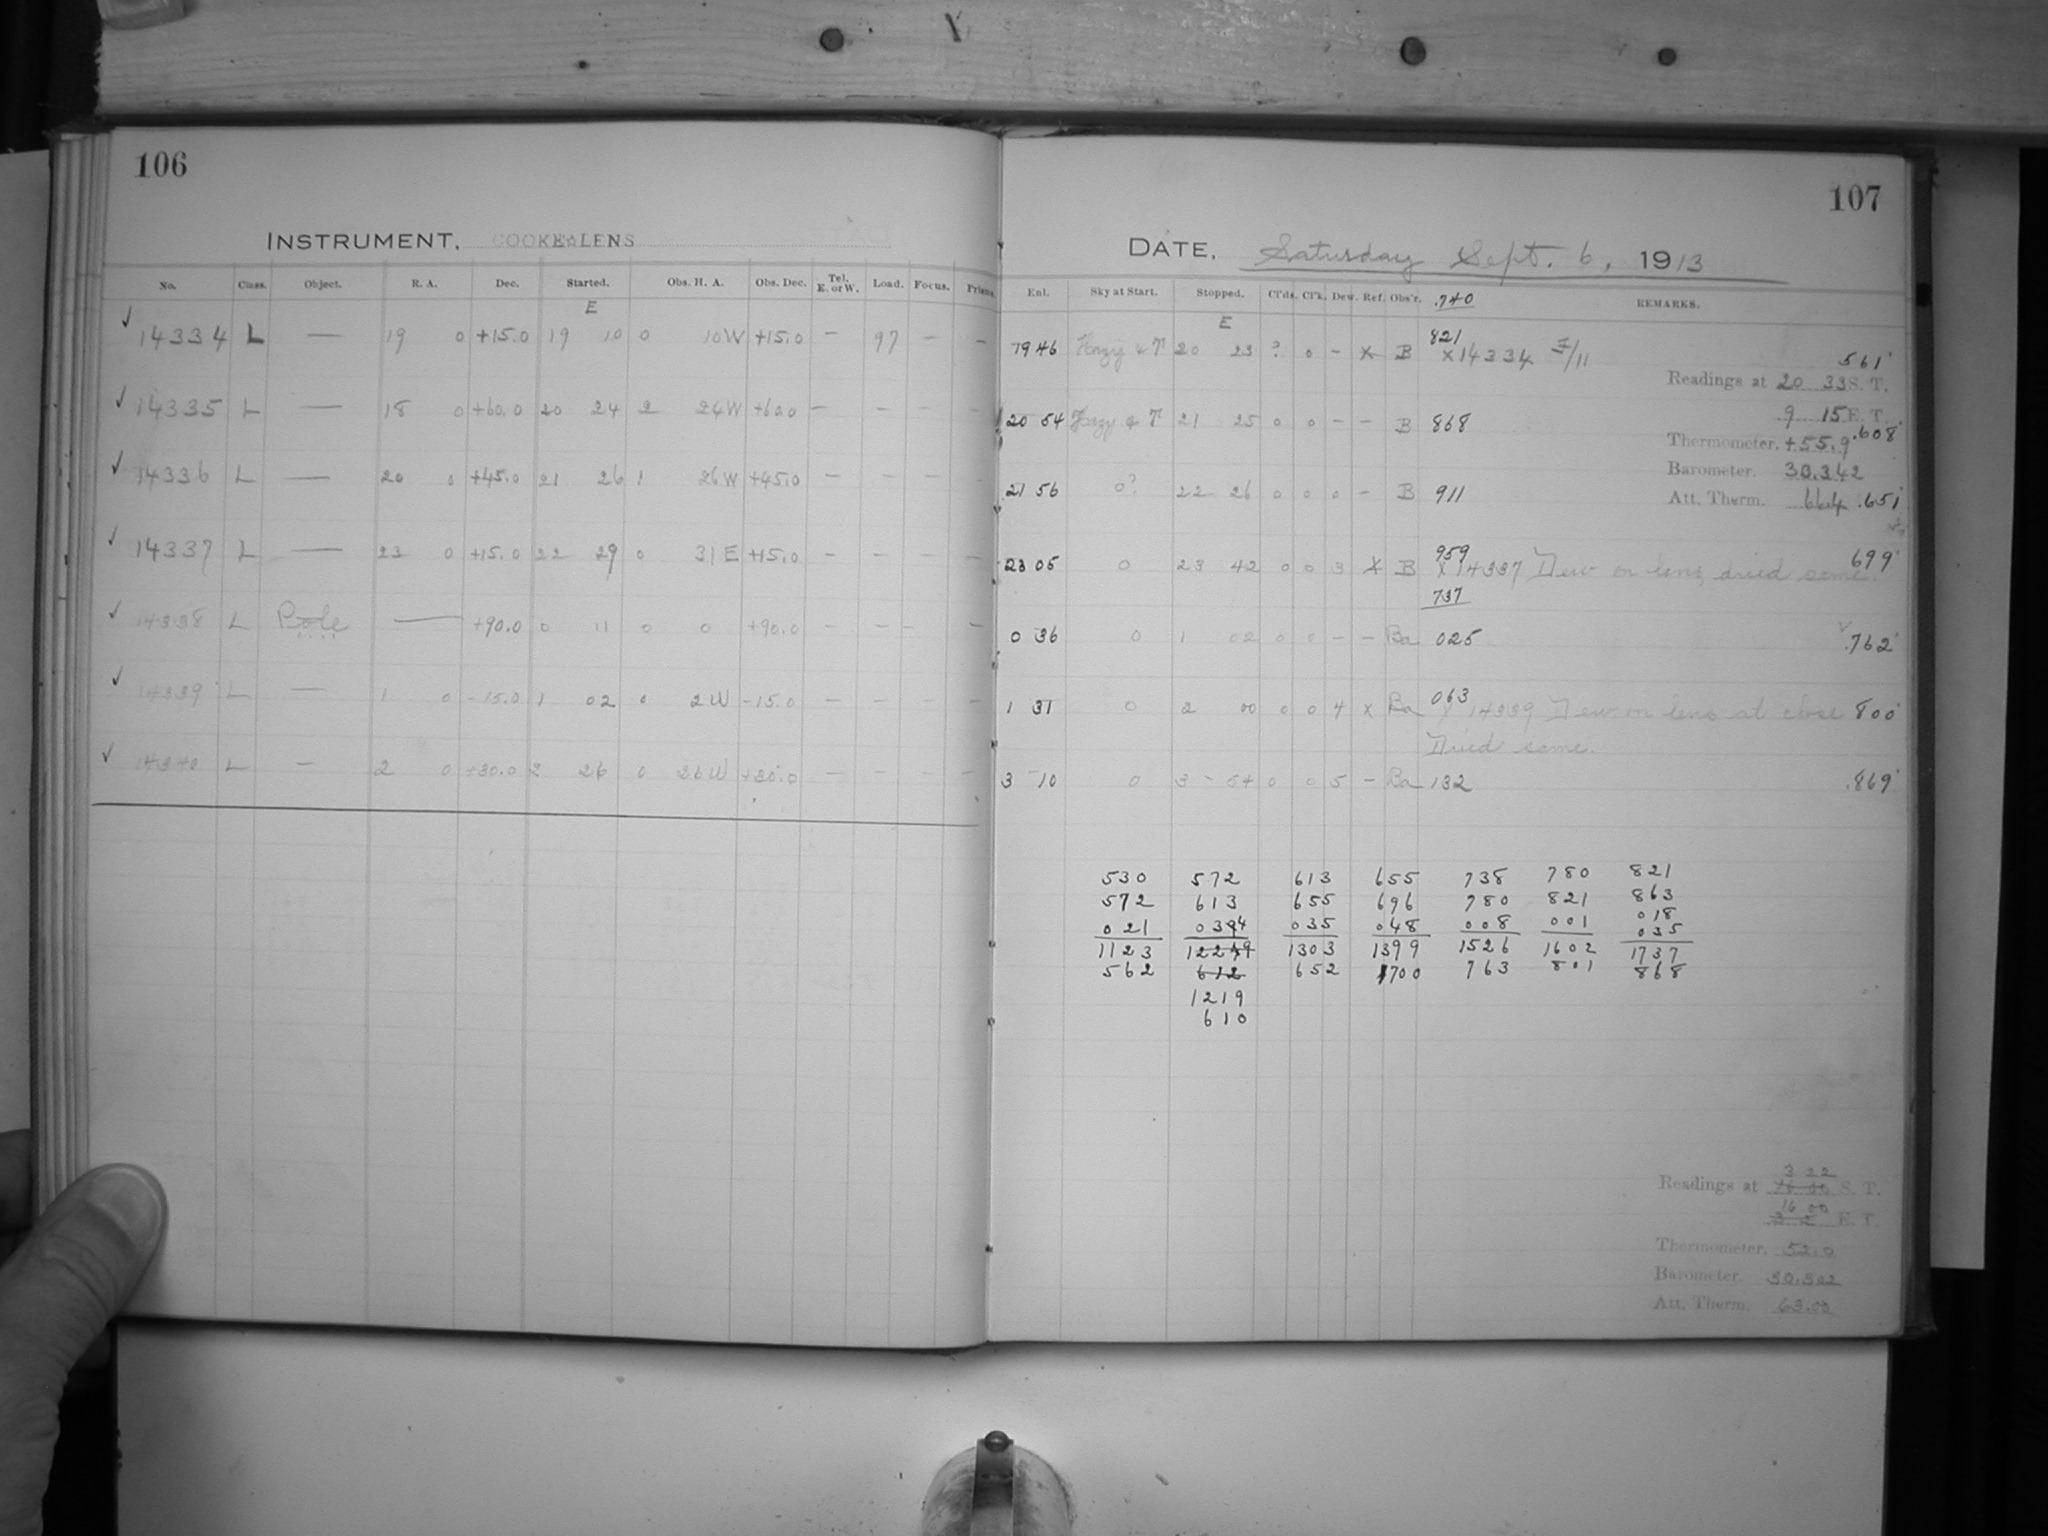 106
INSTRUMENT, COOKE LENS
No. Class. Object. R. A. Dec. Started. Obs. H. A. Obs. Dec. Tel. E. or W. Load. Focus. Prisms.
E
✓ 14334 L — 19 0 +15.0 19 10 0 10W +15.0 — 97 — —
✓ 14335 L — 18 0 +60.0 20 24 2 24W +60.0 — — — —
✓ 14336 L — 20 0 +45.0 21 26 1 26W +45.0 — — — —
✓ 14337 L — 23 0 +15.0 22 29 0 31E +15.0 — — — —
✓ 14338 L Pole — +90.0 0 11 0 0 +90.0 — — — —
✓ 14339 L — 1 0 -15.0 1 02 0 2W -15.0 — — — —
✓ 14340 L — 2 0 +30.0 2 26 0 26W +30.0 — — — —
107
DATE, Saturday Sept. 6, 1913
Enl. Sky at Start. Stopped. Cl'ds. Cl'k. Dew. Ref. Obs'r. .740 REMARKS.
E
821
1946 Hazy & 20 23 ? 0 — X B X14334 /11 561
Readings at 20 33 S. T.
9 15 E. T.
20 54 Hazy & 21 25 0 0 — — B 868 .608
Thermometer. +55.9
Barometer. 30.342
21 56 0? 22 26 0 0 0 — B 911 .651
Att. Therm. 66.4
959
23 05 0 23 42 0 0 3 X B X14337 Dew on lens, dried same. 699
737
0 36 0 1 02 0 0 — — Ba 025 .762
063
1 31 0 2 00 0 0 4 X Ba X 14339 Dew on lens at close 800
Dried same.
3 10 0 3 54 0 0 5 — Ba 132 .869
530 572 613 655 738 780 821
572 613 655 696 780 821 863
021 034 035 048 008 001 018
035
1123 1303 1399 1526 1602 1737
562 612 652 700 763 801 868
1219
610
3 22
Readings at 16 00 S. T.
16 00
3 2 E. T.
Thermometer. 52.0
Barometer. 30.302
Att. Therm. 63.00